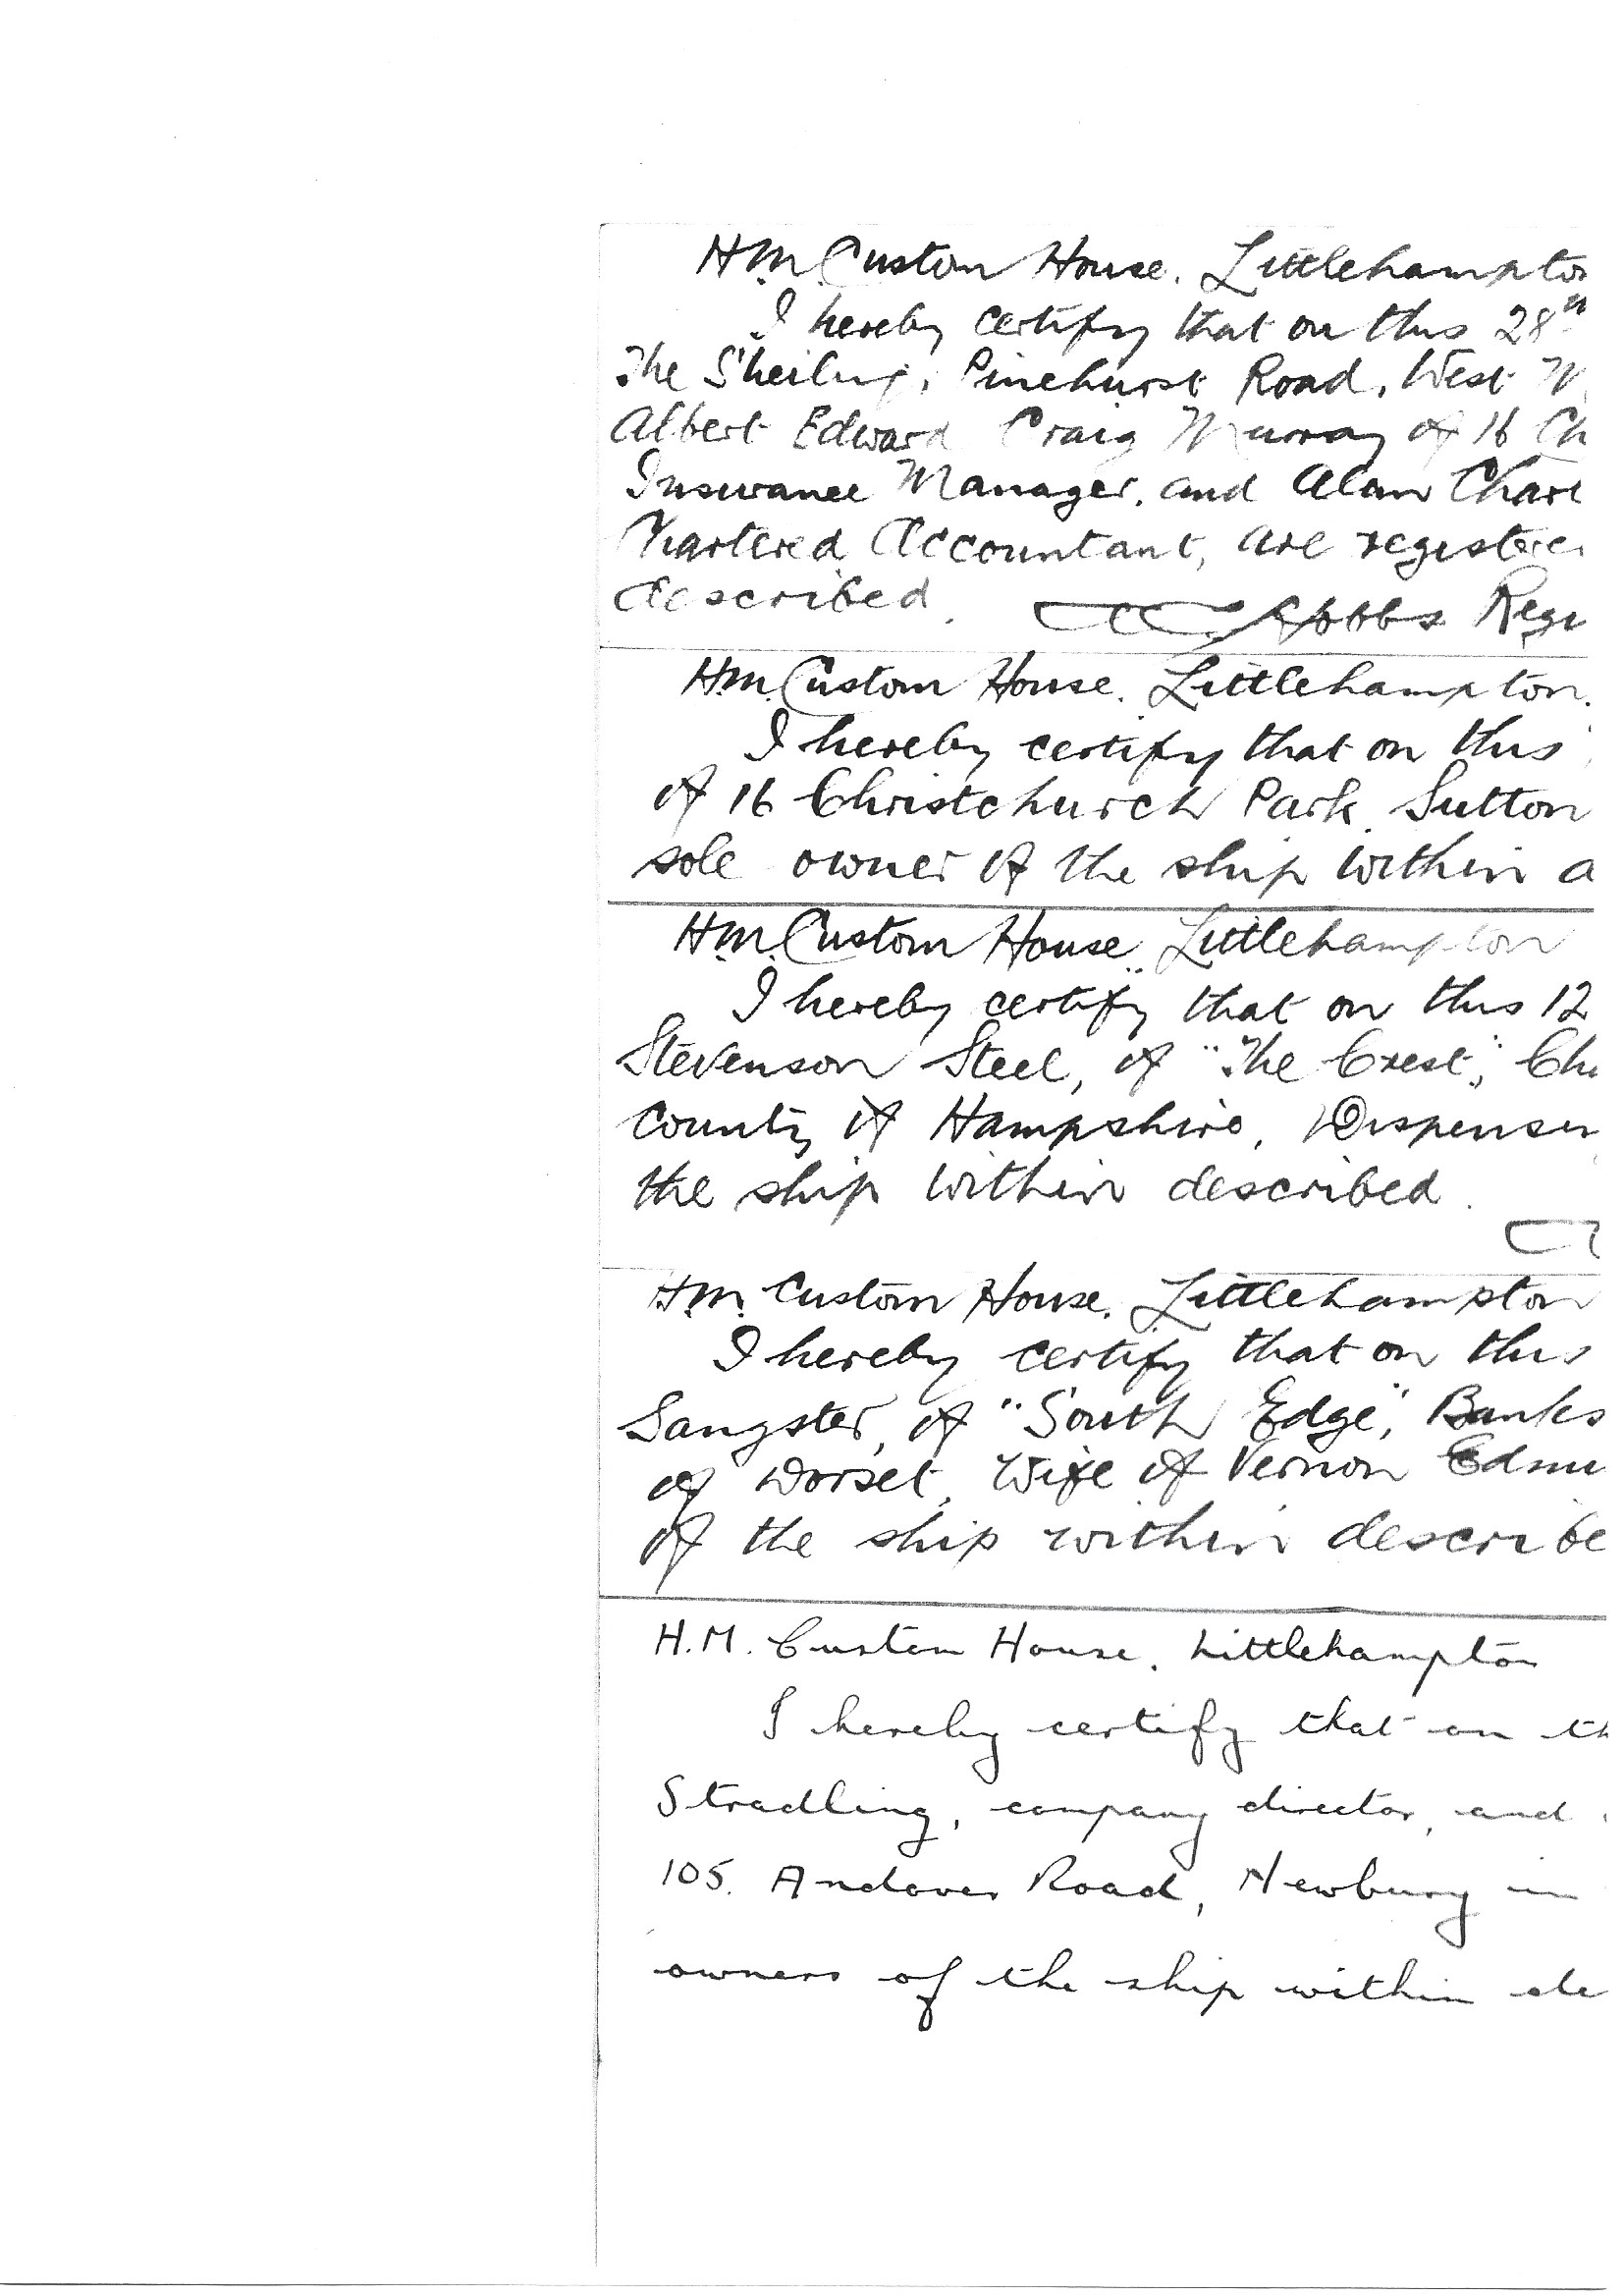 H.M. Custom House. Littlehampton
I hereby certify that on this 28th
The Sheiling, Pinehurst Road, West M
Albert Edward Craig Murray of 16 Ch
Insurance Manager, and Alan Charl
Chartered Accountant, are registere
described. Gobbs Regi
H.M. Custom House. Littlehampton.
I hereby certify that on this
of 16 Christchurch Park, Sutton
sole owner of the ship within a
H.M. Custom House, Littlehampton
I hereby certify that on this 12
Stevenson Steel, of "The Crest", Ch
County of Hampshire, Dispenser
the ship within described.
H.M. Custom House. Littlehampton
I hereby certify that on this
Sangster, of "South Edge", Banks
of Dorset, Wife of Vernon Edmu
of the ship within describe
H.M. Custom House, Littlehampton
I hereby certify that on th
Stradling, company director, and
105. Andover Road, Newbury in
owners of the ship within de